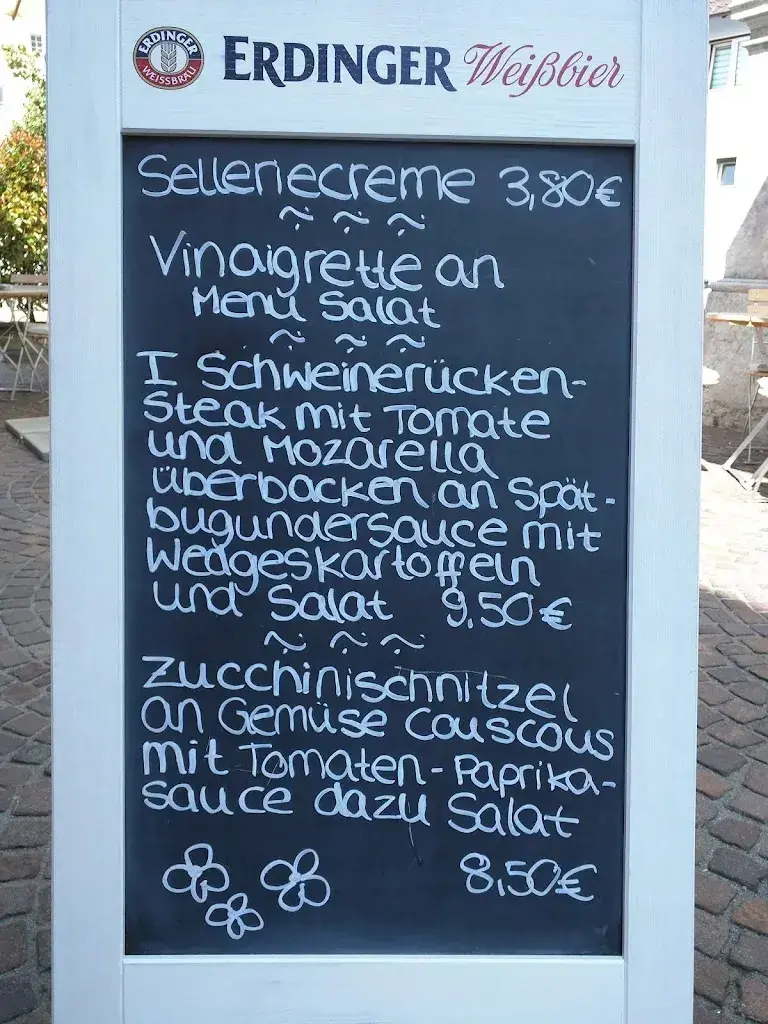 ERDINGER
WEISSBRÄU
ERDINGER Weißbier
Selleriecreme 3,80€
~ ~ ~
Vinaigrette an
Menü Salat
~ ~ ~
I Schweinerücken-
steak mit Tomate
und Mozarella
überbacken an Spät-
bugundersauce mit
Wedgeskartoffeln
und Salat 9,50€
~ ~ ~
Zucchinischnitzel
an Gemüse Couscous
mit Tomaten-Paprika-
sauce dazu Salat
8,50€